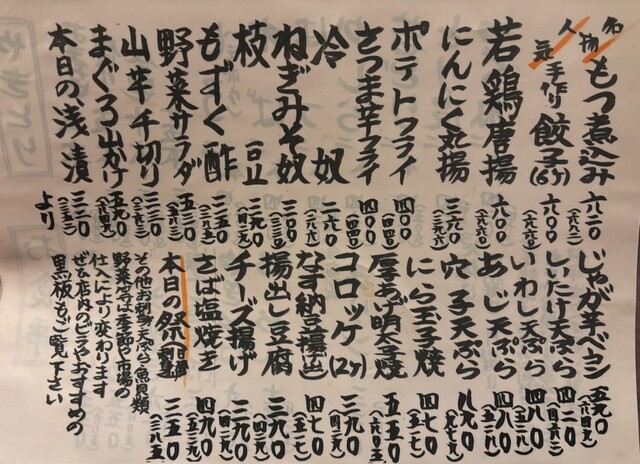 名物 もつ煮込み 六二〇
人気 手作り餃子(6ヶ) 六〇〇
若鶏唐揚 六〇〇
にんにく丸揚 三六〇
ポテトフライ 四〇〇 (四四〇)
さつま芋フライ 四〇〇 (四四〇)
冷奴 二六〇 (二八六)
ねぎみそ奴 三〇〇 (三三〇)
枝豆
もずく酢
野菜サラダ
山芋千切り
まぐろ山かけ 五九〇 (六四九)
本日の浅漬 より
じゃが芋ベーコン 五九〇 (六四九)
しいたけ天ぷら 四二〇 (四六二)
いわし天ぷら 四八〇 (五二八)
あじ天ぷら 四八〇 (五二八)
穴子天ぷら 八九〇 (九七九)
にら玉子焼 四七〇 (五一七)
厚あげ明太子焼 五五〇 (六〇五)
コロッケ(2ヶ) 三九〇 (四二九)
なす納豆揚出し 四七〇 (五一七)
揚出し豆腐 三九〇 (四二九)
チーズ揚げ 三九〇 (四二九)
さば塩焼き 四九〇 (五三九)
本日の祭 三五〇 (三八五)
その他お刺身天ぷら魚貝類
野菜等は季節や市場の
仕入により変わります
ぜひ店内のビラやおすすめの
黒板もご覧下さい